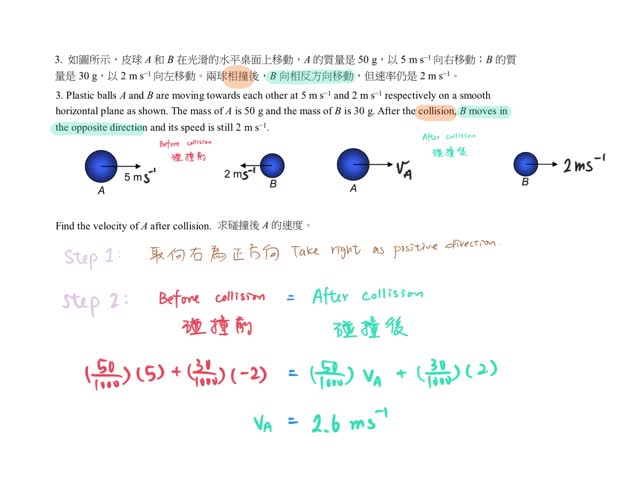 3. 如圖所示，皮球 A 和 B 在光滑的水平桌面上移動，A 的質量是 50 g，以 5 m s⁻¹ 向右移動；B 的質
量是 30 g，以 2 m s⁻¹ 向左移動。兩球相撞後，B 向相反方向移動，但速率仍是 2 m s⁻¹。
3. Plastic balls A and B are moving towards each other at 5 m s⁻¹ and 2 m s⁻¹ respectively on a smooth
horizontal plane as shown. The mass of A is 50 g and the mass of B is 30 g. After the collision, B moves in
the opposite direction and its speed is still 2 m s⁻¹.
Before collision
碰撞前
After collision
碰撞後
5 m s⁻¹
A
2 m s⁻¹
B
V_A
A
2 ms⁻¹
B
Find the velocity of A after collision. 求碰撞後 A 的速度。
Step 1: 取向右為正方向 Take right as positive direction.
Step 2: Before collision = After collision
碰撞前 碰撞後
(50/1000)(5) + (30/1000)(-2) = (50/1000) V_A + (30/1000)(2)
V_A = 2.6 ms⁻¹